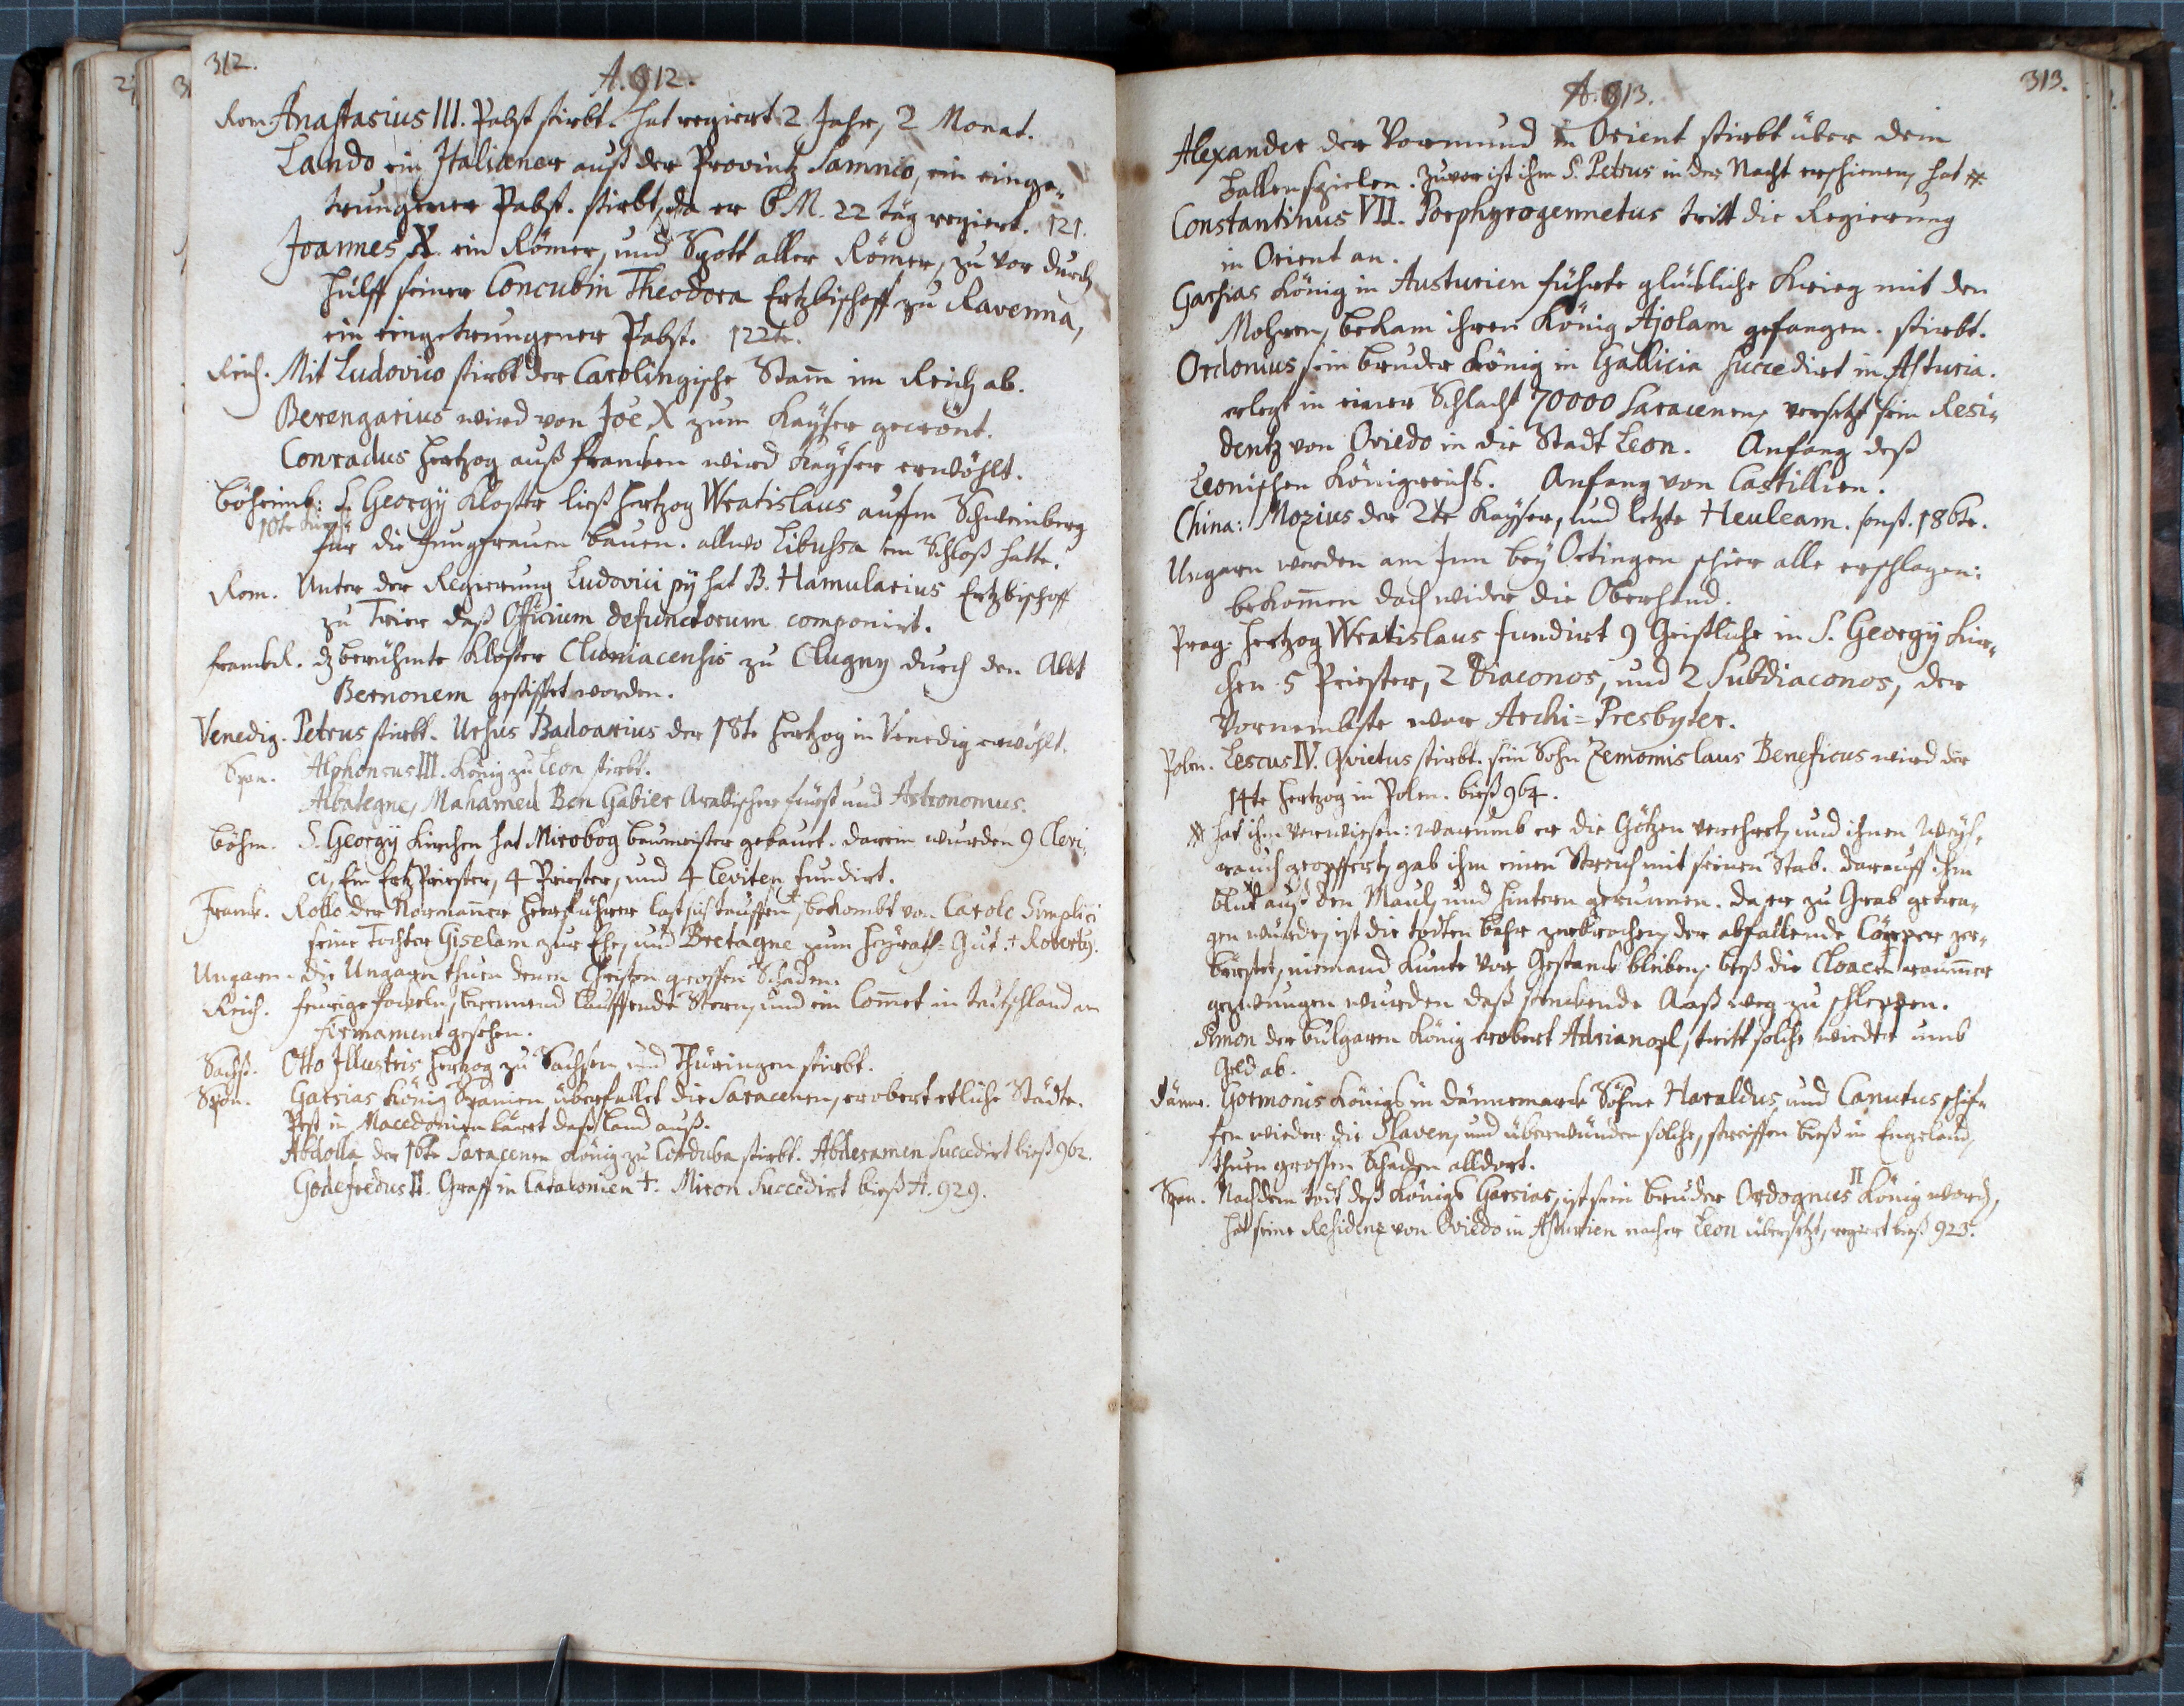 312.
A. 912.
Rom Anastasius III. Pabst stirbt. hat regiert 2 Jahr, 2 Monat.
Lando, ein Italiæner auß der Provintz Samnio, ein einge-
trungener Pabst. stirbt, da er 6 M. 22 täg regiert. 121.
Joannes X. ein Römer, und Spott aller Römer, zu vor durch
Hülff seiner Concubin Theodora Ertzbischoff zu Ravenna,
ein eingetrungener Pabst. 122te.
Reich. Mit Ludovico stirbt der Carolingische Stam̄ im Reich ab.
Berengarius wird von Joē X zum Kayser gecrönt.
Conradus Hertzog auß Francken wird Kayser erwöhlt.
Böheimb: S. Georgÿ Kloster ließ Hertzog Wratislaus auffm Schweinberg
10te
für die Jungfrauen bauen. allwo Libussa ein Schloß hatte.
Rom. Unter der Regierung Ludovici pÿ hat B. Hamularius Ertzbischoff
zu Trier daß Officium defunctorum componirt.
Franckr. dz berühmte Kloster Cluniacensis zu Clugny durch den Abbt
Bernonem gestifftet worden.
Venedig. Petrus stirbt. Ursus Badoarius der 18te Hertzog in Venedig erwöhlt.
Span. Alphonsus III. König zu Leon stirbt.
Albategne, Mahamed Ben Gabier Arabischer fürst und Astronomus.
Böhm. S. Georgÿ Kirchen hat Mirobog baumeister gebauet. darein wurden 9 Cleri-
ci, Ein Ertz Priester, 4 Priester, und 4 Leviten fundirt.
Franck. Rollo der Normanner Heerführer last sich tauffen †, bekombt von Carolo Simplici
seine Tochter Giselam zur Ehe, und Bretagne zum Heÿrath-Gut. † Robertg.
Ungarn. die Ungarn thuen denen Christen grossen Schaden.
Reich. feurige fackeln, brennend lauffende Stern, und ein Com̄et in Teutschland am
firmament gesehen.
Sachß. Otto Illustris Hertzog zu Sachsen und Thüringen stirbt.
Span. Garsias König Spanien überfallet die Saracenen, erobert etliche Städte.
Pest in Macedonien läeret daß land auß.
Abdolla der 16te Saracenen König zu Corduba stirbt. Abderamen Succedirt bieß 962.
Godefredus II. Graff in Catalonien †. Miron Succedirt bieß A. 929.
313.
A. 913.
Alexander der Vormund in Orient stirbt über dem
Ballenspielen. Zuvor ist ihm S. Petrus in der Nacht erschienen, hat #
Constantinus VII. Porphyrogennetus tritt die Regierung
in Orient an.
Garsias König in Austurien führte glückliche Krieg mit den
Mohren, bekam ihren König Ajolam gefangen. stirbt.
Ordonius sein bruder König in Gallicia succedirt in Asturia.
erlegt in einer Schlacht 70000 Saracenen, versetzt sein Resi-
dentz von Oviedo in die Stadt Leon. Anfang deß
Leonischen Königreichs. Anfang von Castillien.
China: Mozius der 2te Kayser, und letzte Heuleam. sonst. 186te.
Ungarn werden am Inn bey Oetingen schier alle erschlagen:
bekom̄en doch wider die Oberhand.
Prag: Hertzog Wratislaus fundirt 9 Geistliche in S. Georgÿ Kir-
chen. 5 Priester, 2 Diaconos, und 2 Subdiaconos, der
Vornembste war Archi=Presbyter.
Polen. Lescus IV. Qvietus stirbt. sein Sohn Zemomislaus Beneficus wird der
14te Hertzog in Polen. bieß 964.
# hat ihm verwiesen: warumb er die Götzen verehret, und ihnen Weyh-
rauch geopffert, gab ihm einen Streich mit seinen Stab. darauff ihm
blut auß den Maul, und hintern gerunnen. da er zu Grab getra-
gen wurde, ist die todten bahr zerbrochen, der abfallende Cörper zer-
börstet, niemand kunte vor Gestanck bleiben, bieß die Cloacen raum̄er
gezwungen wurden daß stinckende Aaß weg zu schleppen.
Simon der Bulgaren König erobert Adrianopl, tritt solche wieder umb
Geld ab.
Dänne. Gormonis Königs in Dännemarck Söhne Haraldus und Canutus schif-
fen wieder die Slaven, und überwünden solche, streiffen bieß in Engeland,
thuen grossen Schaden alldort.
Span. Nach dem todt deß Königs Garsias, ist sein bruder Ordognus II König word,
hat seine Residenz von Oviedo in Asturien nacher Leon übersetzt, regiert bieß 923.